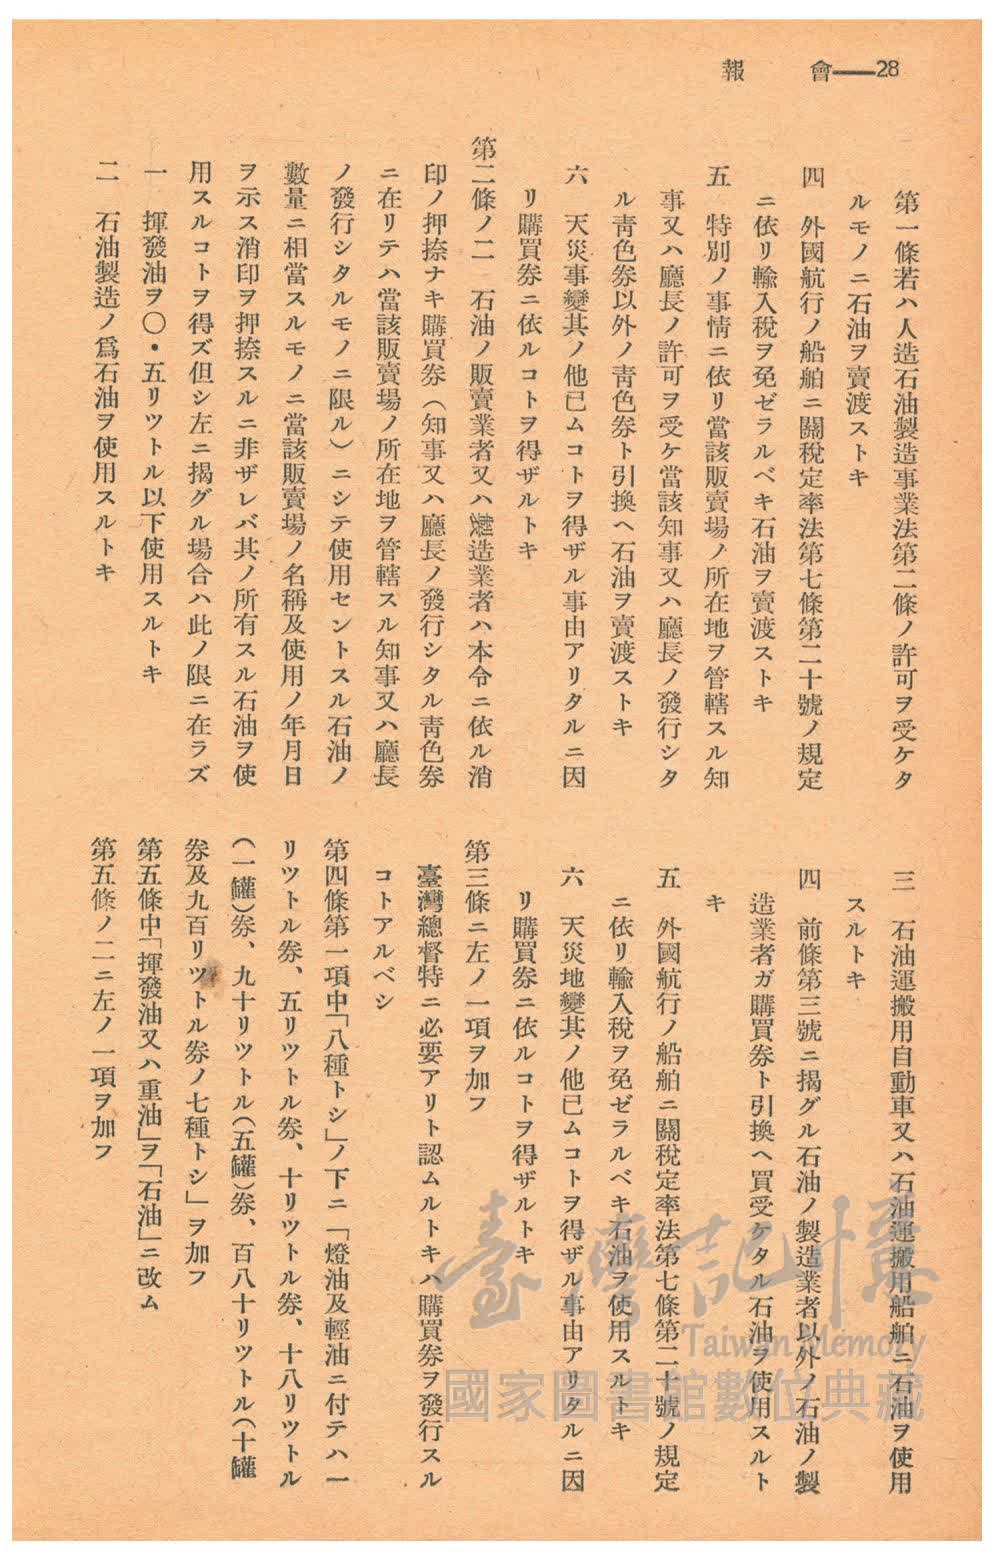 報　會——28
第一條若ハ人造石油製造事業法第二條ノ許可ヲ受ケタ
ルモノニ石油ヲ賣渡ストキ
四　外國航行ノ船舶ニ關稅定率法第七條第二十號ノ規定
ニ依リ輸入稅ヲ免ゼラルベキ石油ヲ賣渡ストキ
五　特別ノ事情ニ依リ當該販賣場ノ所在地ヲ管轄スル知
事又ハ廳長ノ許可ヲ受ケ當該知事又ハ廳長ノ發行シタ
ル靑色券以外ノ靑色券ト引換ヘ石油ヲ賣渡ストキ
六　天災事變其ノ他已ムコトヲ得ザル事由アリタルニ因
リ購買券ニ依ルコトヲ得ザルトキ
第二條ノ二　石油ノ販賣業者又ハ製造業者ハ本令ニ依ル消
印ノ押捺ナキ購買券（知事又ハ廳長ノ發行シタル靑色券
ニ在リテハ當該販賣場ノ所在地ヲ管轄スル知事又ハ廳長
ノ發行シタルモノニ限ル）ニシテ使用セントスル石油ノ
數量ニ相當スルモノニ當該販賣場ノ名稱及使用ノ年月日
ヲ示ス消印ヲ押捺スルニ非ザレバ其ノ所有スル石油ヲ使
用スルコトヲ得ズ但シ左ニ揭グル場合ハ此ノ限ニ在ラズ
一　揮發油ヲ〇・五リツトル以下使用スルトキ
二　石油製造ノ爲石油ヲ使用スルトキ
三　石油運搬用自動車又ハ石油運搬用船舶ニ石油ヲ使用
スルトキ
四　前條第三號ニ揭グル石油ノ製造業者以外ノ石油ノ製
造業者ガ購買券ト引換ヘ買受ケタル石油ヲ使用スルト
キ
五　外國航行ノ船舶ニ關稅定率法第七條第二十號ノ規定
ニ依リ輸入稅ヲ免ゼラルベキ石油ヲ使用スルトキ
六　天災地變其ノ他已ムコトヲ得ザル事由アリタルニ因
リ購買券ニ依ルコトヲ得ザルトキ
第三條ニ左ノ一項ヲ加フ
臺灣總督特ニ必要アリト認ムルトキハ購買券ヲ發行スル
コトアルベシ
第四條第一項中「八種トシ」ノ下ニ「燈油及輕油ニ付テハ一
リツトル券、五リツトル券、十リツトル券、十八リツトル
（一罐）券、九十リツトル（五罐）券、百八十リツトル（十罐
券及九百リツトル券ノ七種トシ」ヲ加フ
第五條中「揮發油又ハ重油」ヲ「石油」ニ改ム
第五條ノ二ニ左ノ一項ヲ加フ
臺灣記憶
Taiwan Memory
國家圖書館數位典藏